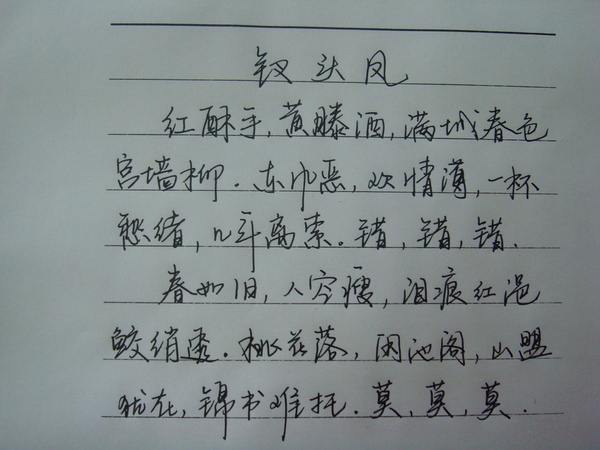 钗头凤
红酥手,黄滕酒,满城春色
宫墙柳.东风恶,欢情薄,一杯
愁绪,几年离索。错,错,错.
春如旧,人空瘦,泪痕红浥
鲛绡透.桃花落,闲池阁,山盟
犹在,锦书难托.莫,莫,莫.